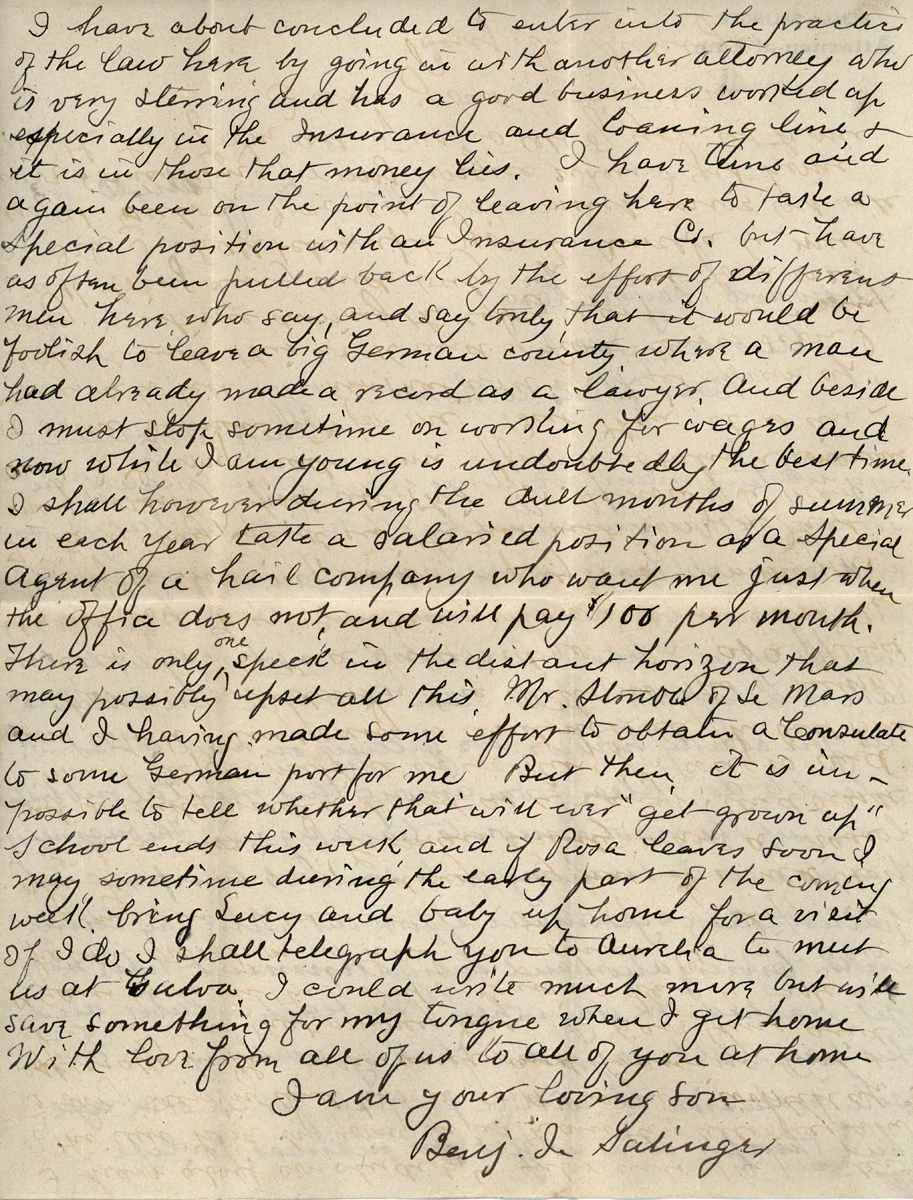 I have about concluded to enter into the practice
of the law here by going in with another attorney who
is very stirring and has a good business worked up
especially in the Insurance and loaning line &
it is in those that money lies. I have time and
again been on the point of leaving here to take a
special position with an Insurance Co. but have
as often been pulled back by the effort of different
men here who say, and say truly, that it would be
foolish to leave a big German county where a man
had already made a record as a lawyer. And beside
I must stop sometime on working for wages and
now while I am young is undoubtedly the best time.
I shall however during the dull months of summer
in each year take a salaried position as a Special
Agent of a hail company who want me just when
the office does not, and will pay $100 per month.
There is only one speck in the distant horizon that
may possibly upset all this, Mr. Struble of Le Mars
and I having made some effort to obtain a Consulate
to some German port for me But then it is im-
possible to tell whether that will ever "get grown up"
School ends this week and if Rosa leaves soon I
may sometime during the early part of the coming
week bring Lucy and baby up home for a visit
If I do I shall telegraph you to Aurelia to meet
us at Galva. I could write much more but will
save something for my tongue when I get home
With love from all of us to all of you at home
I am your loving son
Benj. I. Salinger